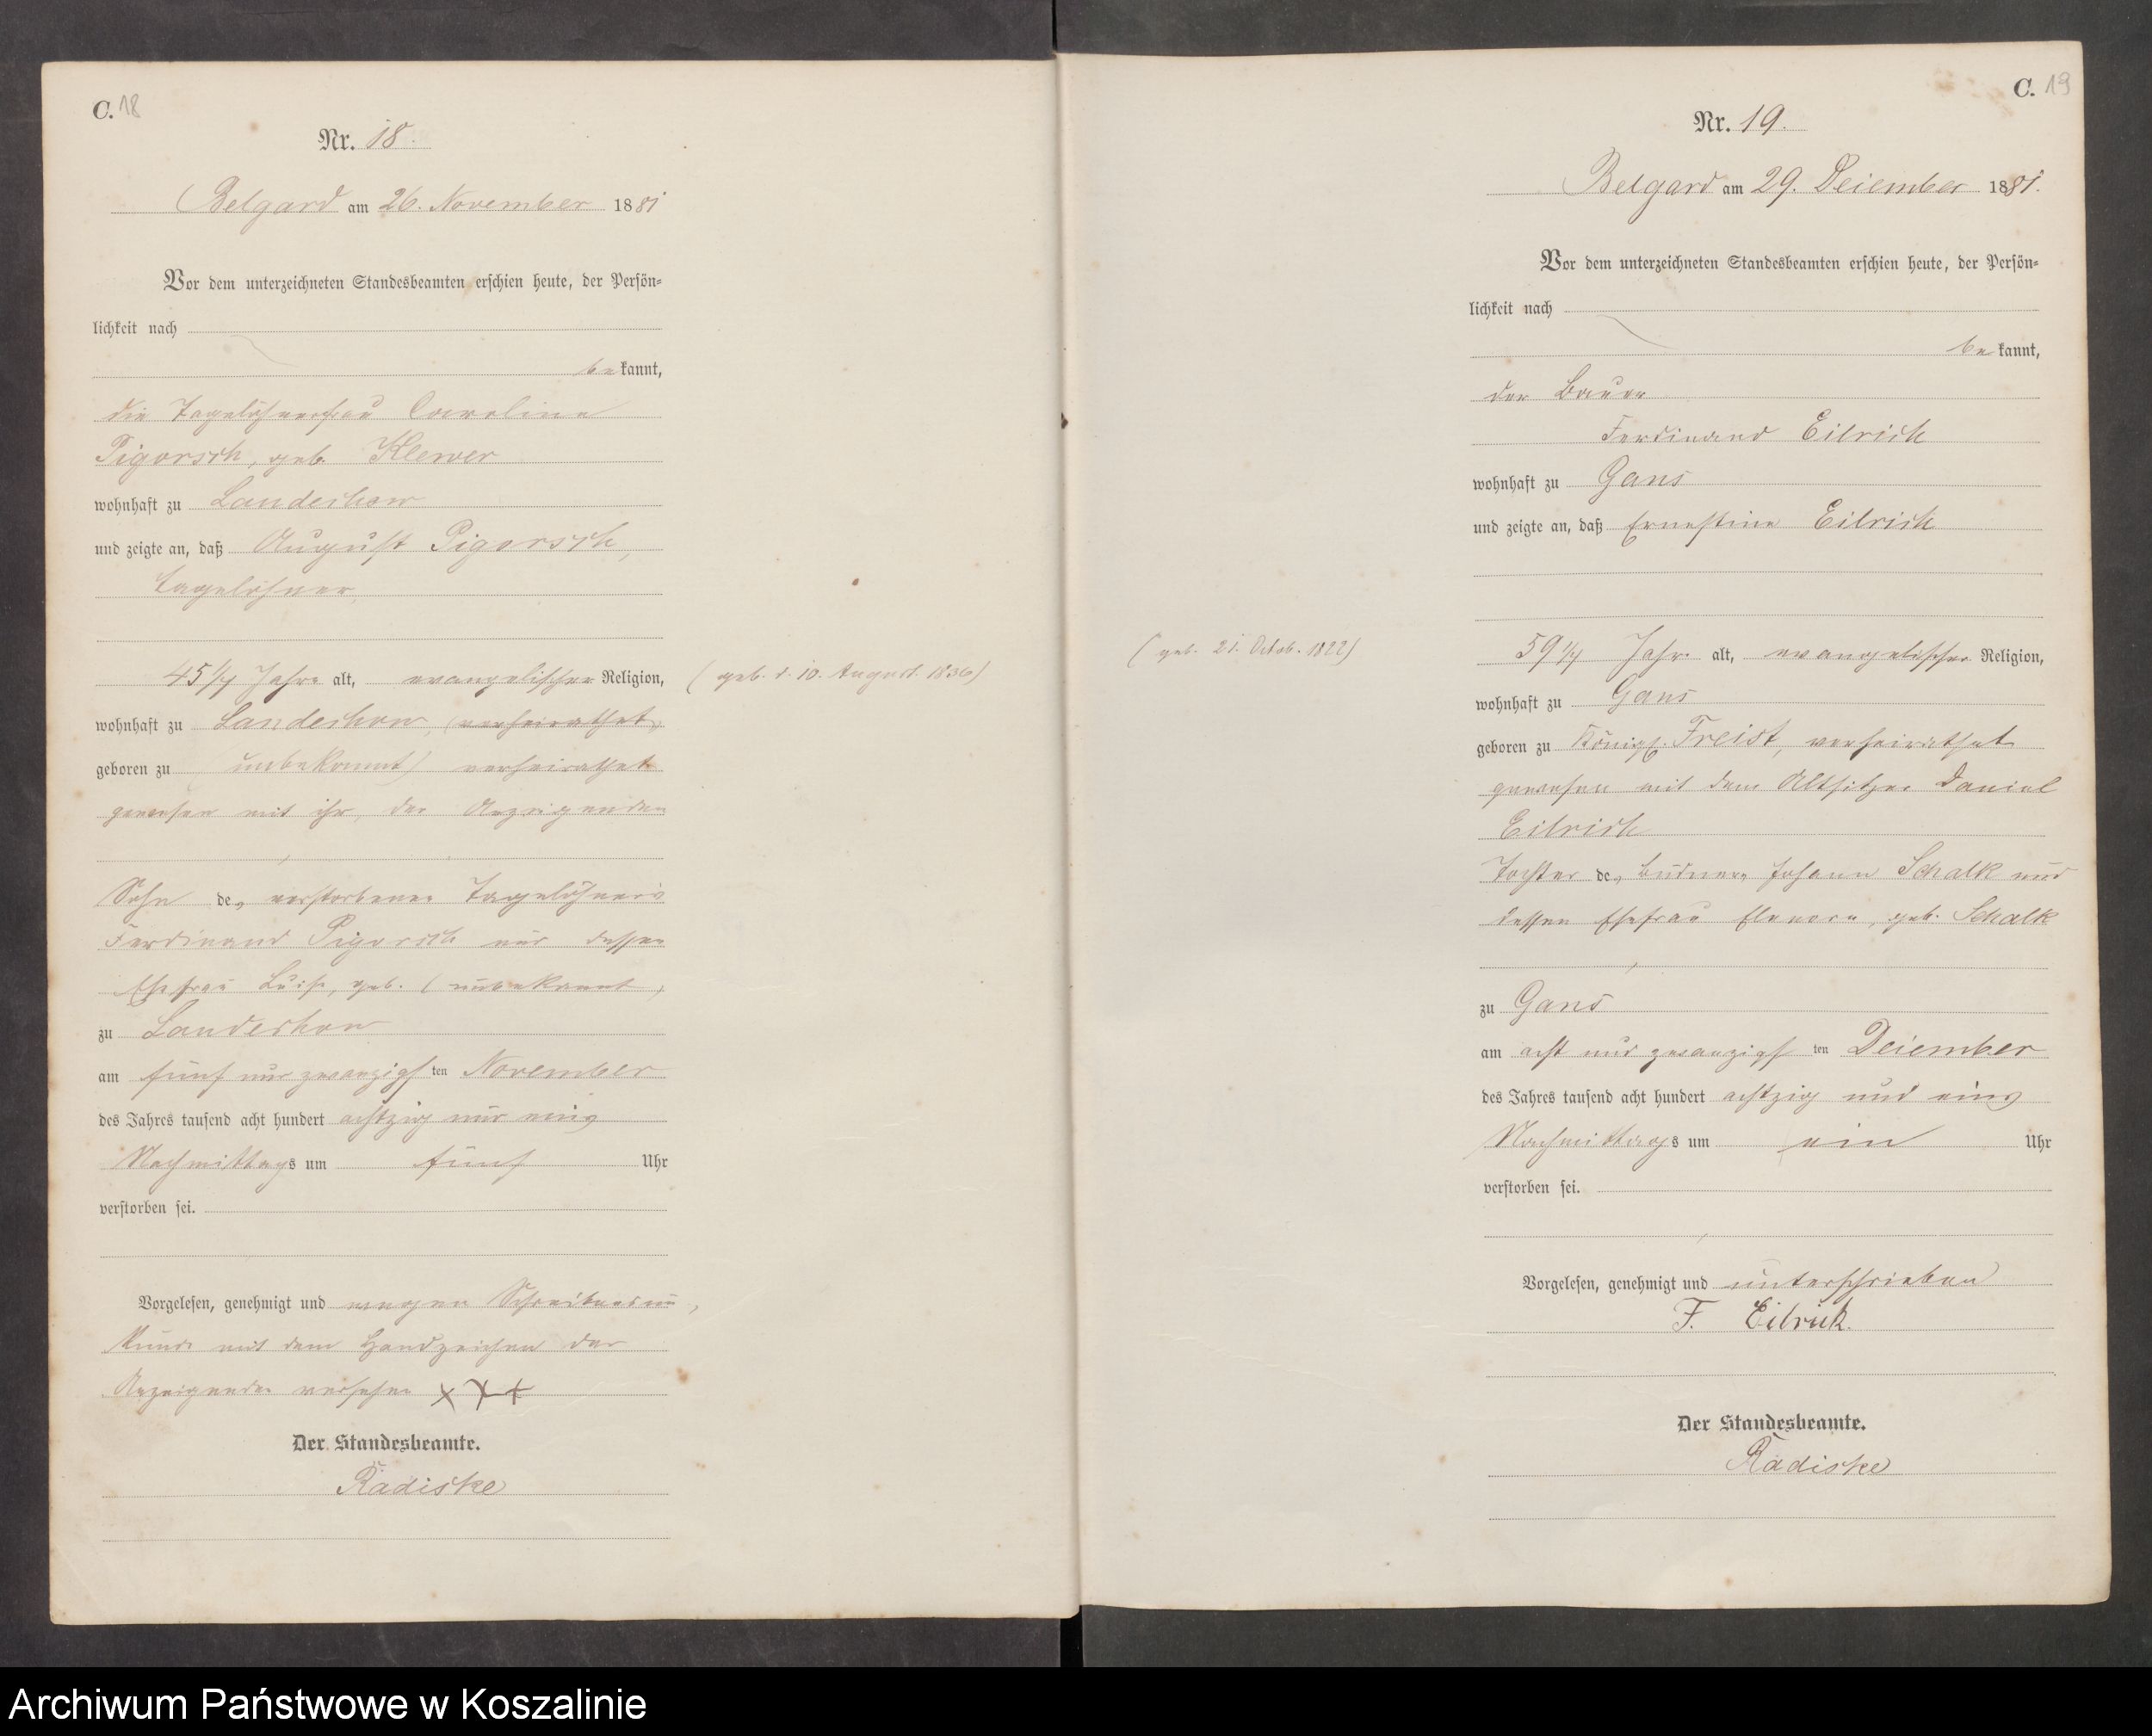 C. 18
Nr. 18.
Belgard am 26. November 1881
Vor dem unterzeichneten Standesbeamten erschien heute, der Persön-
lichkeit nach
bekannt,
die Tagelöhnerfrau Caroline
Pigorsch, geb. Klewer
wohnhaft zu Landechow
und zeigte an, daß August Pigorsch,
Tagelöhner,
45 1/4 Jahre alt, evangelischer Religion, (geb. d. 10. August 1836)
wohnhaft zu Landechow, (verheirathet)
geboren zu (unbekannt) verheirathet
gewesen mit ihr, der Anzeigenden
Sohn des verstorbenen Tagelöhners
Ferdinand Pigorsch und dessen
Ehefrau Luise, geb. (unbekannt)
zu Landechow
am fünf und zwanzigsten November
des Jahres tausend acht hundert achtzig und eins
Nachmittags um fünf Uhr
verstorben sei.
Vorgelesen, genehmigt und wegen Schreibensun-
kunde mit dem Handzeichen der
Anzeigenden versehen XXX
Der Standesbeamte.
Radiske
C. 19
Nr. 19.
Belgard am 29. Dezember 1881.
Vor dem unterzeichneten Standesbeamten erschien heute, der Persön-
lichkeit nach
bekannt,
der Bauer
Ferdinand Eilrich
wohnhaft zu Gans
und zeigte an, daß Ernestine Eilrich
(geb. 21. Octob. 1822) 59 1/4 Jahre alt, evangelischer Religion,
wohnhaft zu Gans
geboren zu Königl. Freist, verheirathet
gewesen mit dem Altsitzer Daniel
Eilrich
Tochter des Büdners Johann Schalk und
dessen Ehefrau Elenore, geb. Schalk
zu Gans
am acht und zwanzigsten Dezember
des Jahres tausend acht hundert achtzig und eins
Nachmittags um ein Uhr
verstorben sei.
Vorgelesen, genehmigt und unterschrieben
F. Eilrich.
Der Standesbeamte.
Radiske
Archiwum Państwowe w Koszalinie